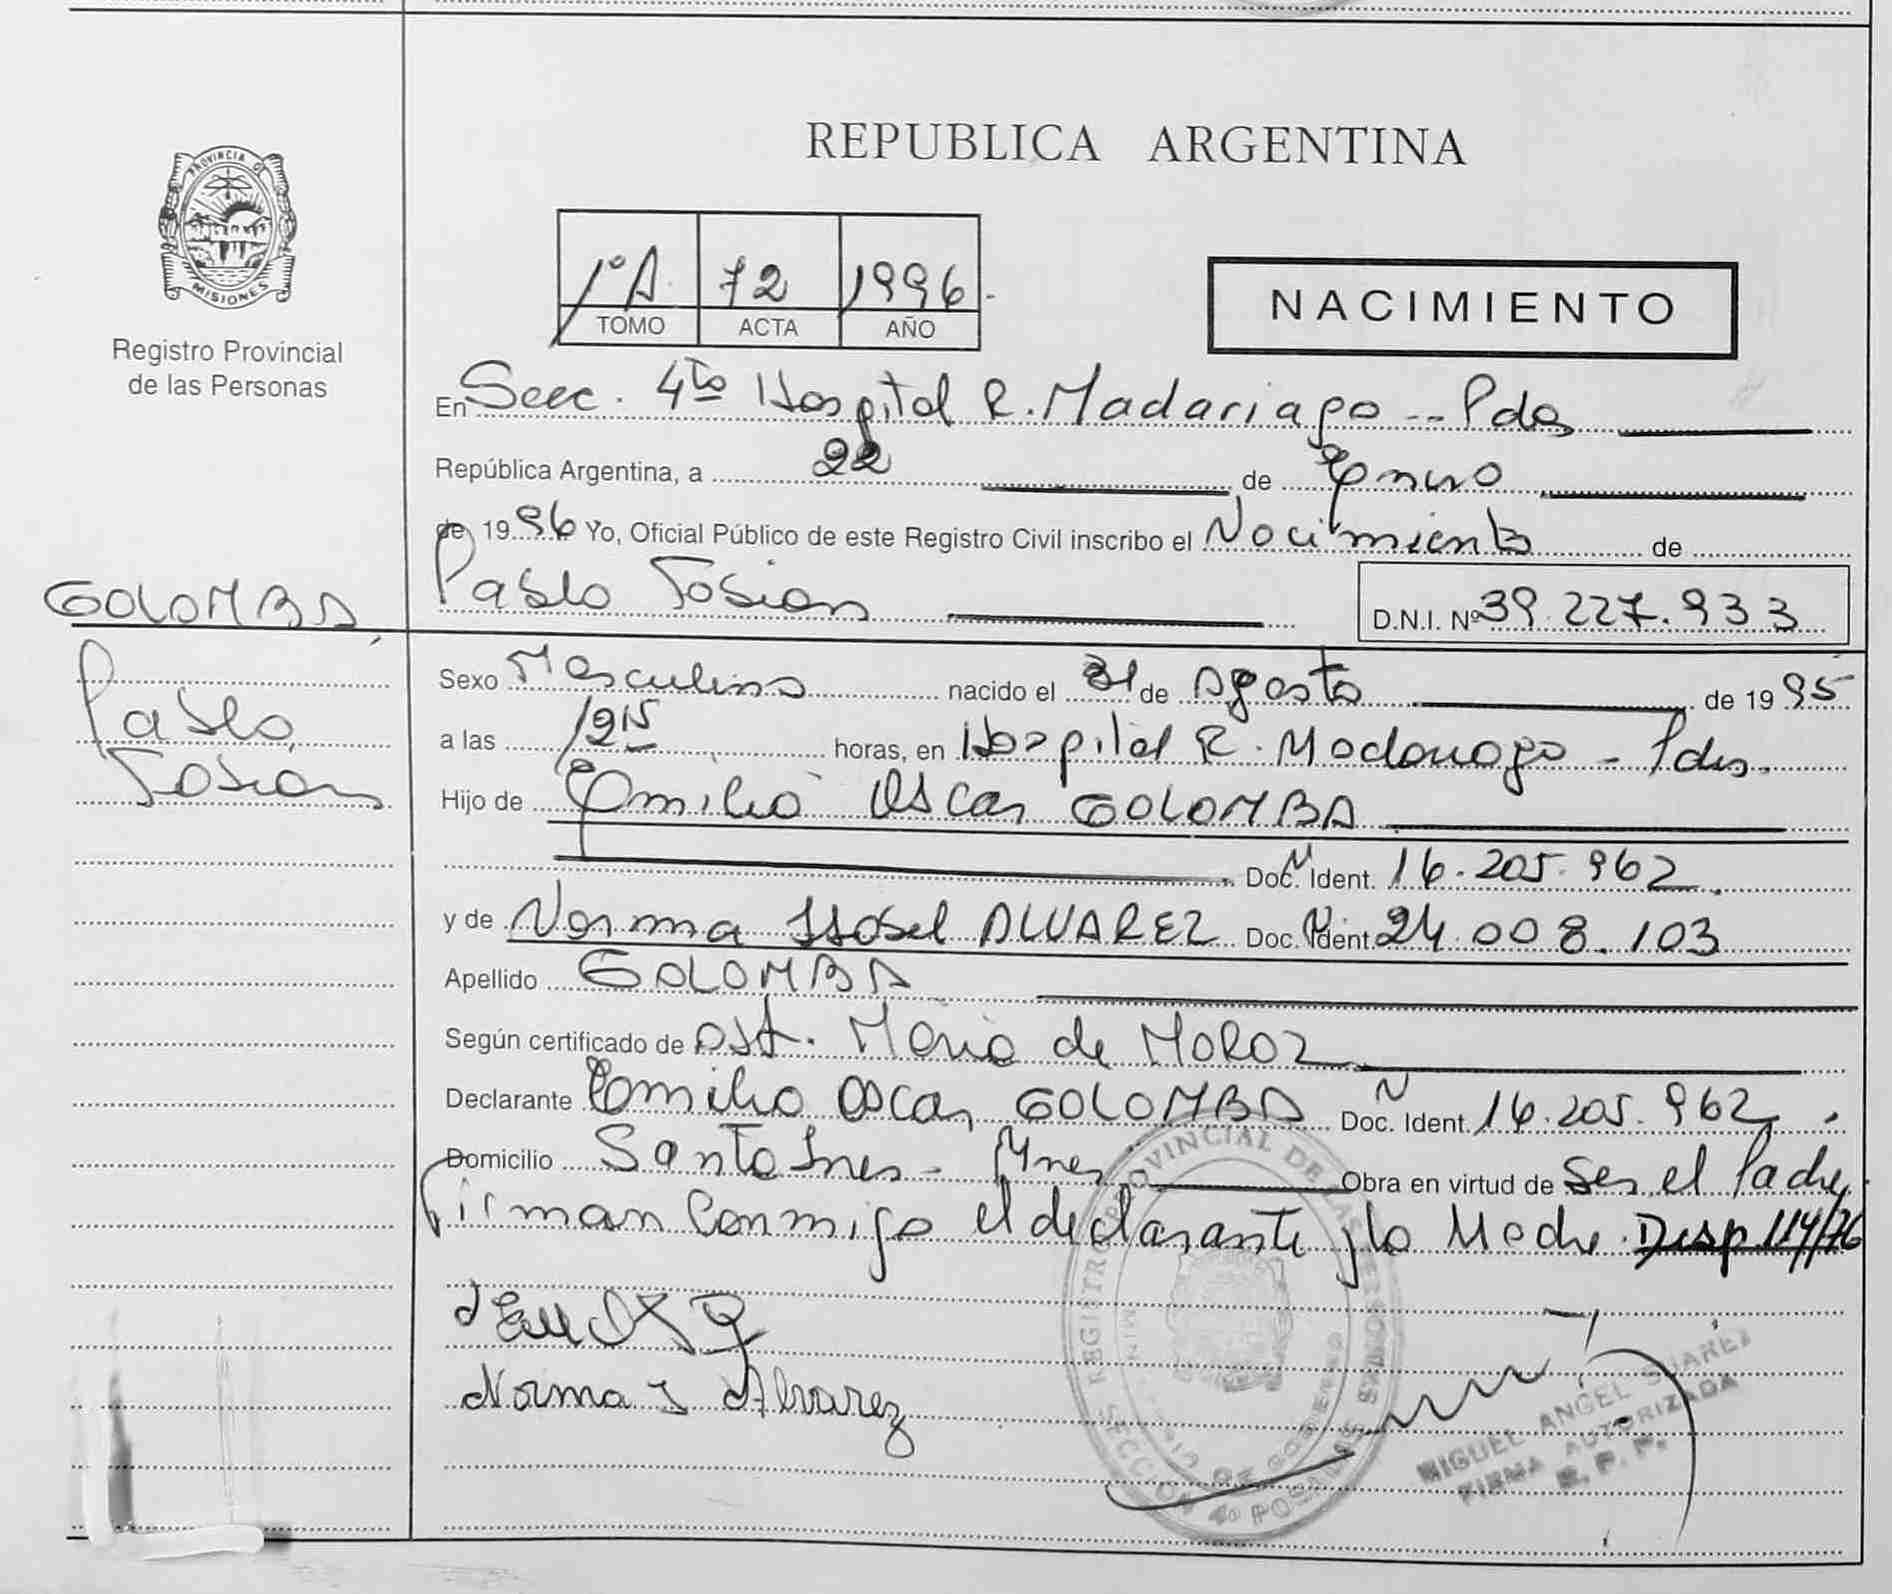 PROVINCIA DE
MISIONES
Registro Provincial
de las Personas
REPUBLICA ARGENTINA
1º A 72 1996
TOMO ACTA AÑO
NACIMIENTO
En Secc. 4ta Hospital R. Madariaga -- Pdas
República Argentina, a 22 de Enero
de 1996 Yo, Oficial Público de este Registro Civil inscribo el Nacimiento de
GOLOMBA
Pablo
Fabian
Pablo Fabian
D.N.I. Nº 39.227.933
Sexo Masculino nacido el 31 de Agosto de 1995
a las 19 15 horas, en Hospital R. Madariaga - Pdas.
Hijo de Emilio Oscar GOLOMBA
Doc. Ident. 16.205.962
y de Norma Isabel ALVAREZ Doc. Ident. 24.008.103
Apellido GOLOMBA
Según certificado de Obst. Maria de MOROZ
Declarante Emilio Oscar GOLOMBA Doc. Ident. 16.205.962
Domicilio Santa Ines - Mnes Obra en virtud de Ser el Padre
Firman Conmigo el declarante y la Madre. Disp. 114/76
Norma I Alvarez
REGISTRO PROVINCIAL DE LAS PERSONAS
SECCION 4a POSADAS
MINISTERIO DE GOBIERNO
MIGUEL ANGEL SUAREZ
FIRMA AUTORIZADA
R. P. P.